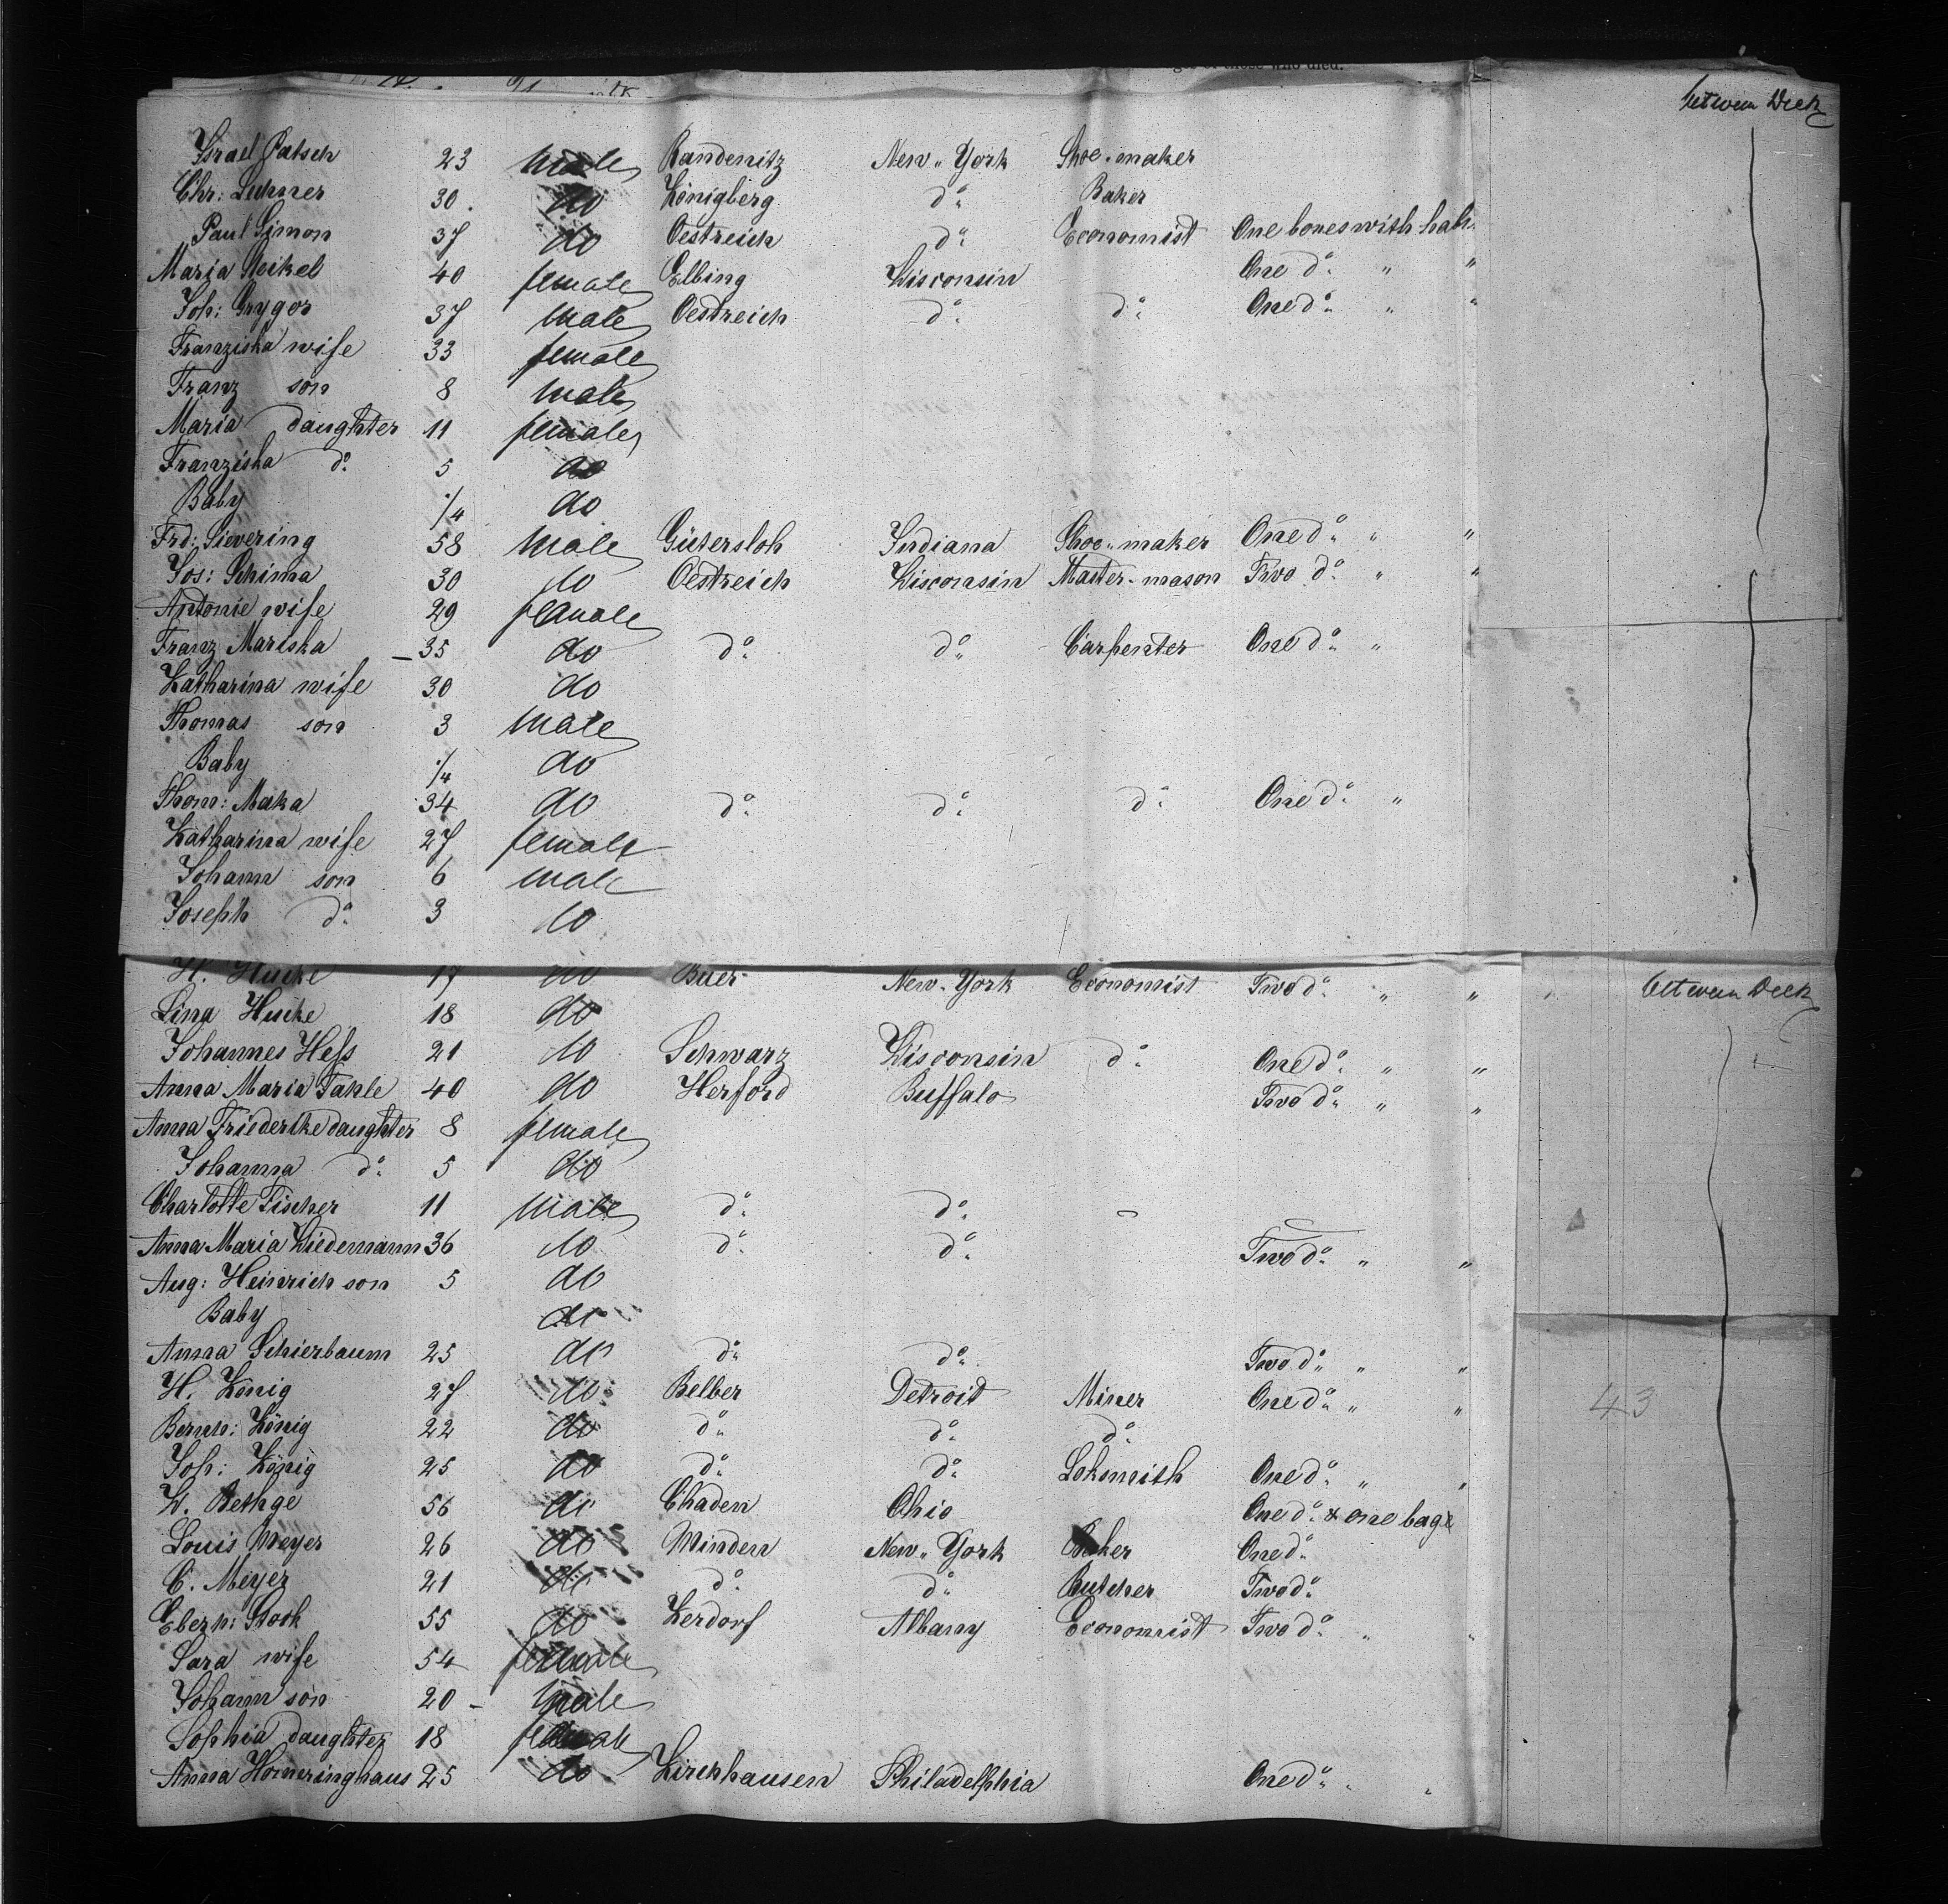 ges of those who died.
between Deck
Israel Patsch 23 male Raudenitz New-York Shoe-maker
Chr: Lehner 30. do Königberg do Baker
Paul Simon 37 do Oestreich do Economist One boxes with hab:
Maria Neikel 40 female Elbing Wisconsin One do " "
Joh: Gryger 37 male Oestreich do do One do " "
Franziska wife 33 female
Franz son 8 male
Maria daughter 11 female
Franziska do 5 do
Baby 1/4 do
Frd: Sievering 58 male Gütersloh Indiana Shoe-maker One do " "
Jos: Schima 30 do Oestreich Wisconsin Master-mason Two do " "
Antonie wife 29 female
Franz Mariska 35 do do do Carpenter One do "
Katharina wife 30 do
Thomas son 3 male
Baby 1/4 do
Thom: Maka 34 do do do do One do "
Katharina wife 27 female
Johann son 6 male
Joseph do 3 do
H. Hucke 17 do Buer New-York Economist Two do " " between Deck
Lina Hucke 18 do
Johannes Hess 21 do Schwarz Wisconsin do One do " "
Anna Maria Fahle 40 do Herford Buffalo Two do " "
Anna Friederike daughter 8 female
Johanna do 5 do
Charlotte Fischer 11 male do do –
Anna Maria Wiedemann 36 do do do Two do " "
Aug: Heinrich son 5 do
Baby do
Anna Schierbaum 25 do do do Two do " "
H. König 27 do Belber Detroit Miner One do " "
43
Bernh: König 22 do do do do
Joh: König 25 do do do Loksmith One do " "
W. Bethge 56 do Chaden Ohio One do & one bags
Louis Meyer 26 do Minden New-York Baker One do
C. Meyer 21 do do do Butcher Two do
Eberh: Stock 55 do Kerdorf Albany Economist Two do " "
Sara wife 54 female
Johann son 20 male
Sophia daughter 18 female
Anna Homeringhaus 25 do Kirchhausen Philadelphia One do " "